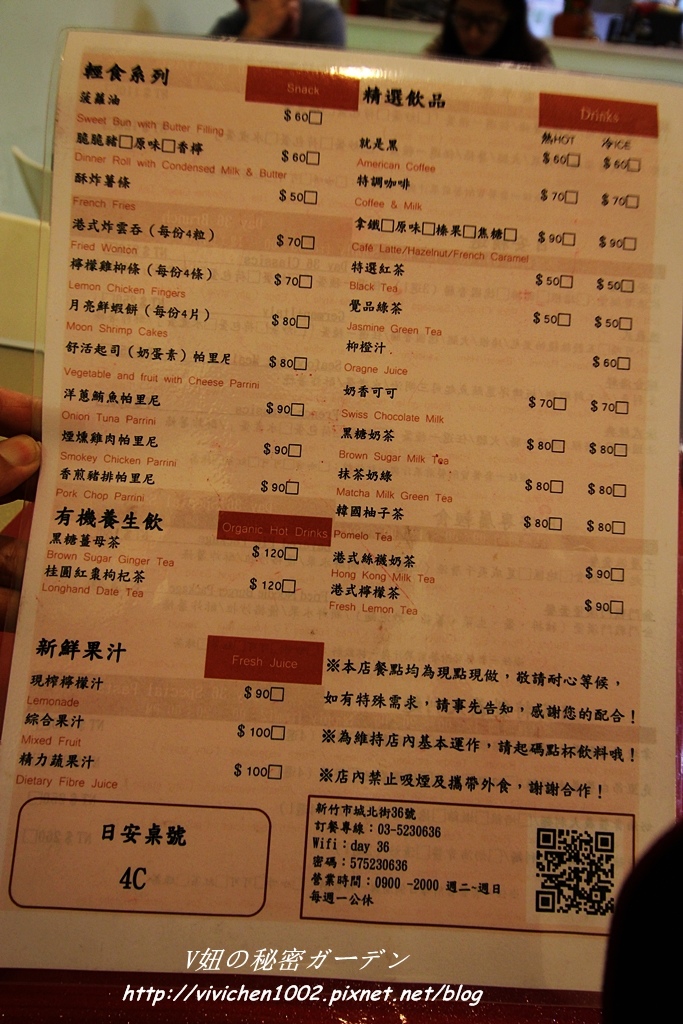 輕食系列
Snack
菠蘿油
$ 60□
Sweet Bun with Butter Filling
脆脆豬□原味□香檸
$ 60□
Dinner Roll with Condensed Milk & Butter
酥炸薯條
$ 50□
French Fries
港式炸雲吞(每份4粒)
$ 70□
Fried Wonton
檸檬雞柳條(每份4條)
$ 70□
Lemon Chicken Fingers
月亮鮮蝦餅(每份4片)
$ 80□
Moon Shrimp Cakes
舒活起司(奶蛋素)帕里尼
$ 80□
Vegetable and fruit with Cheese Parrini
洋蔥鮪魚帕里尼
$ 90□
Onion Tuna Parrini
煙燻雞肉帕里尼
$ 90□
Smokey Chicken Parrini
香煎豬排帕里尼
$ 90□
Pork Chop Parrini
有機養生飲
Organic Hot Drinks
黑糖薑母茶
$ 120□
Brown Sugar Ginger Tea
桂圓紅棗枸杞茶
$ 120□
Longhand Date Tea
新鮮果汁
Fresh Juice
現榨檸檬汁
$ 90□
Lemonade
綜合果汁
$ 100□
Mixed Fruit
精力蔬果汁
$ 100□
Dietary Fibre Juice
日安桌號
4C
精選飲品
Drinks
熱HOT 冷ICE
就是黑
$ 60□ $ 60□
American Coffee
特調咖啡
$ 70□ $ 70□
Coffee & Milk
拿鐵□原味□榛果□焦糖□
$ 90□ $ 90□
Café Latte/Hazelnut/French Caramel
特選紅茶
$ 50□ $ 50□
Black Tea
覺品綠茶
$ 50□ $ 50□
Jasmine Green Tea
柳橙汁
$ 60□
Oragne Juice
奶香可可
$ 70□ $ 70□
Swiss Chocolate Milk
黑糖奶茶
$ 80□ $ 80□
Brown Sugar Milk Tea
抹茶奶綠
$ 80□ $ 80□
Matcha Milk Green Tea
韓國柚子茶
$ 80□ $ 80□
Pomelo Tea
港式絲襪奶茶
$ 90□
Hong Kong Milk Tea
港式檸檬茶
$ 90□
Fresh Lemon Tea
※本店餐點均為現點現做，敬請耐心等候，
如有特殊需求，請事先告知，感謝您的配合！
※為維持店內基本運作，請起碼點杯飲料哦！
※店內禁止吸煙及攜帶外食，謝謝合作！
新竹市城北街36號
訂餐專線：03-5230636
Wifi：day 36
密碼：575230636
營業時間：0900 -2000 週二~週日
每週一公休
V妞の秘密ガーデン
http://vivichen1002.pixnet.net/blog